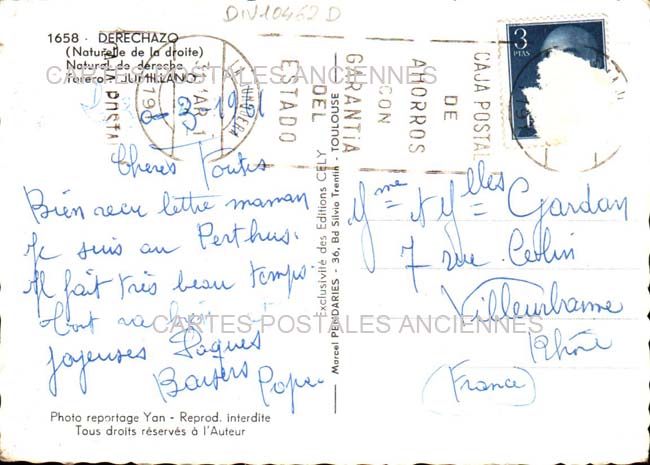 DIV10462 D
1658 - DERECHAZO
(Naturelle de la droite)
Natural de derecha
Torero : JUMILLANO
CARTES POSTALES ANCIENNES
3
PTAS
CAJA POSTAL
DE
AHORROS
CON
GARANTIA
DEL
ESTADO
Chères Toutes
Bien reçu lettre maman
Je suis au Perthus.
Il fait très beau temps.
Tout va bien
Joyeuses Pâques
Baisers Papa
Exclusivité des Editions CELY
Marcel PENDARIES - 36, Bd Silvio Trentin - TOULOUSE
Mme & Mlles Gardan
7 rue
Villeurbanne
Rhône
(France)
CARTES POSTALES ANCIENNES
Photo reportage Yan - Reprod. interdite
Tous droits réservés à l'Auteur